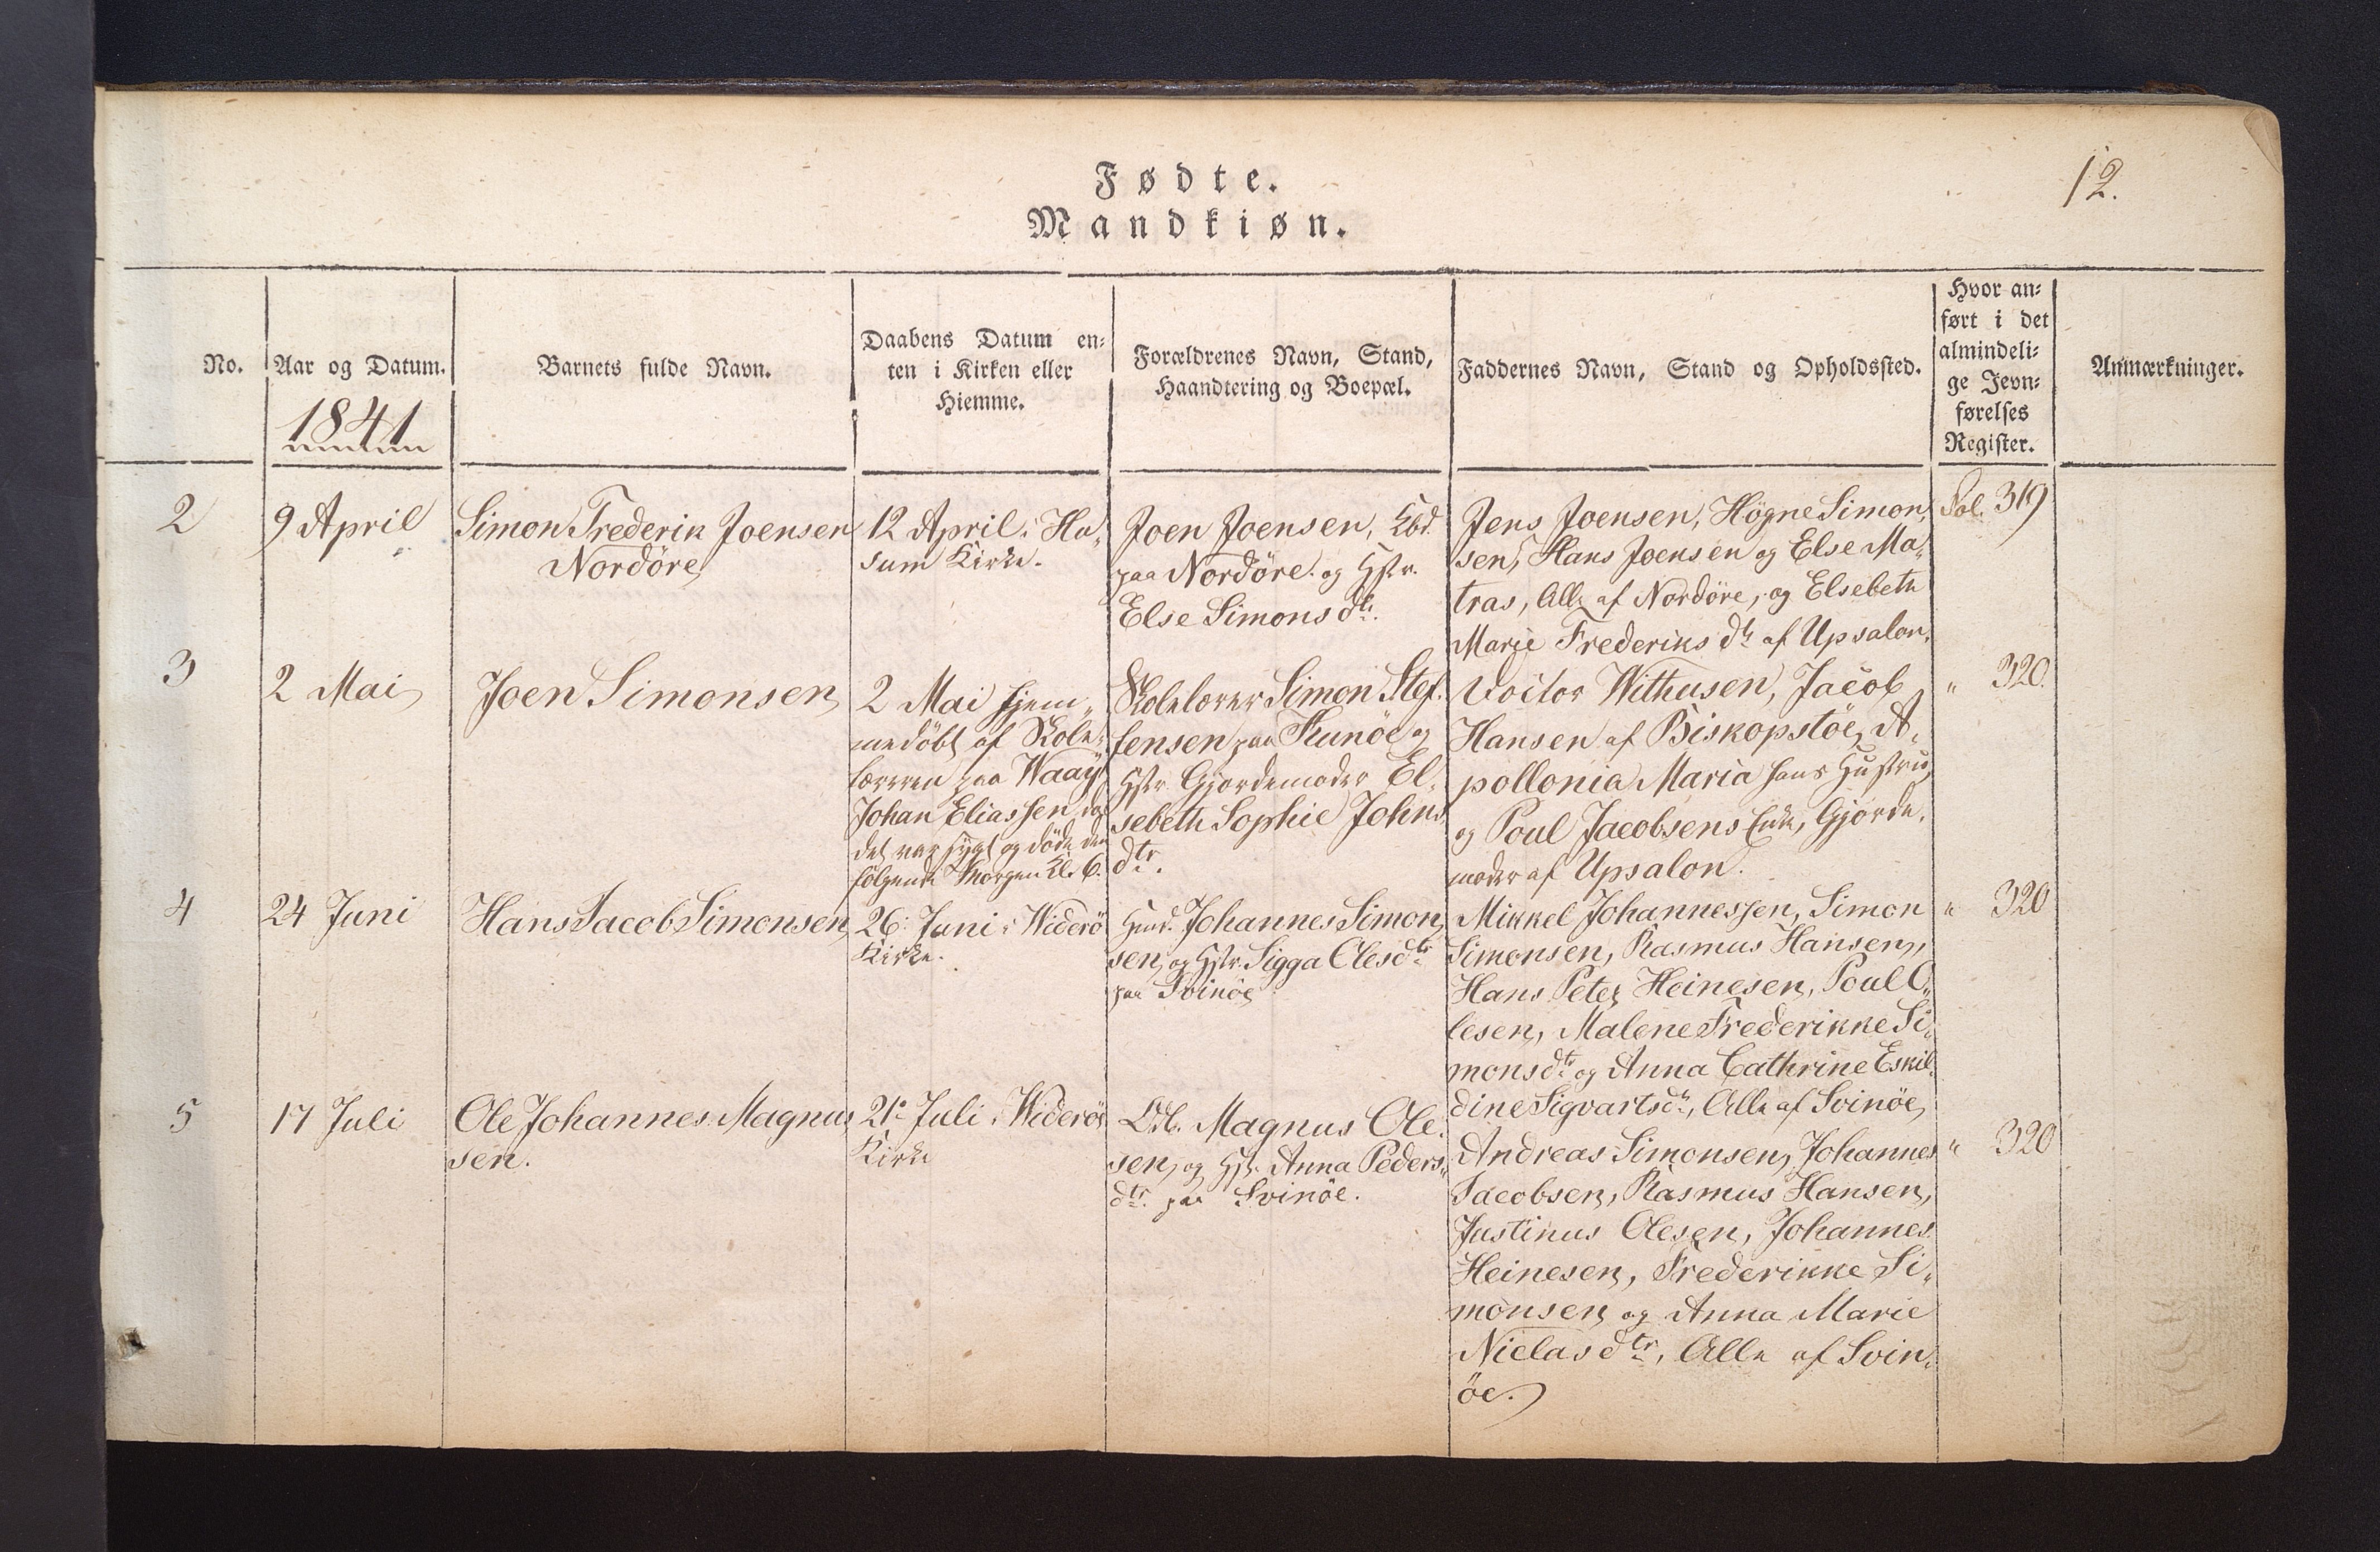 Fødte.
Mandkiøn.
12.
No.
Aar og Datum.
1841
Barnets fulde Navn.
Daabens Datum en-
ten i Kirken eller
Hiemme.
Forældrenes Navn, Stand,
Haandtering og Boepæl.
Faddernes Navn, Stand og Opholdssted.
Hvor an-
ført i det
almindeli-
ge Jevn-
førelses
Register.
Anmærkninger.
2
9 April
Simon Frederik Joensen
Nordöre
12 April. Hu„
sum Kirke.
Joen Joensen,
paa Nordöre. og Hstr.
Else Simonsdtr.
Jens Joensen, Högne Simon„
sen, Hans Joensen og Else Ma„
tras, Alle af Nordöre, og Elsebeth
Marie Frederiks dtr af Upsalon.
Fol. 319
3
2 Mai
Joen Simonsen
2 Mai hjem„
medöbt af Skole„
læreren paa Waay
Johan Eliassen, da
det var sygt og döde den
fölgende Morgen Kl. 6.
Skolelærer Simon Stef„
fensen paa Kunöe og
Hstr Gjordemoder El„
sebeth Sophie Johns
dtr.
Joen Withusen, Jacob
Hansen af Biskopstöe, A„
pollonia Maria hans Hustru,
og Poul Jacobsens Enke, Gjorde„
moder af Upsalon.
„ 320.
4
24 Juni
Hans Jacob Simonsen
26. Juni i Widerö
Kirke.
Johannes Simon
sen, og Hstr. Sigga Olesdtr
paa Svinöe
Mikkel Johannessen, Simon
Simonsen, Rasmus Hansen,
Hans Peter Heinesen, Poul O„
lesen, Malene Frederikke Si„
monsdtr og Anna Cathrine Eskil„
dine Sigvartsdtr, Alle af Svinöe
„ 320
5
17 Juli
Ole Johannes Magnus
sen.
21. Juli i Wideröe
Kirke
Magnus Ole„
sen, og Hstr. Anna Peders„
dtr. paa Svinöe.
Andreas Simonsen, Johannes
Jacobsen, Rasmus Hansen,
Justinus Olesen, Johannes
Heinesen, Frederikke Si„
monsen og Anna Marie
Nielasdtr, Alle af Svin„
öe.
„ 320